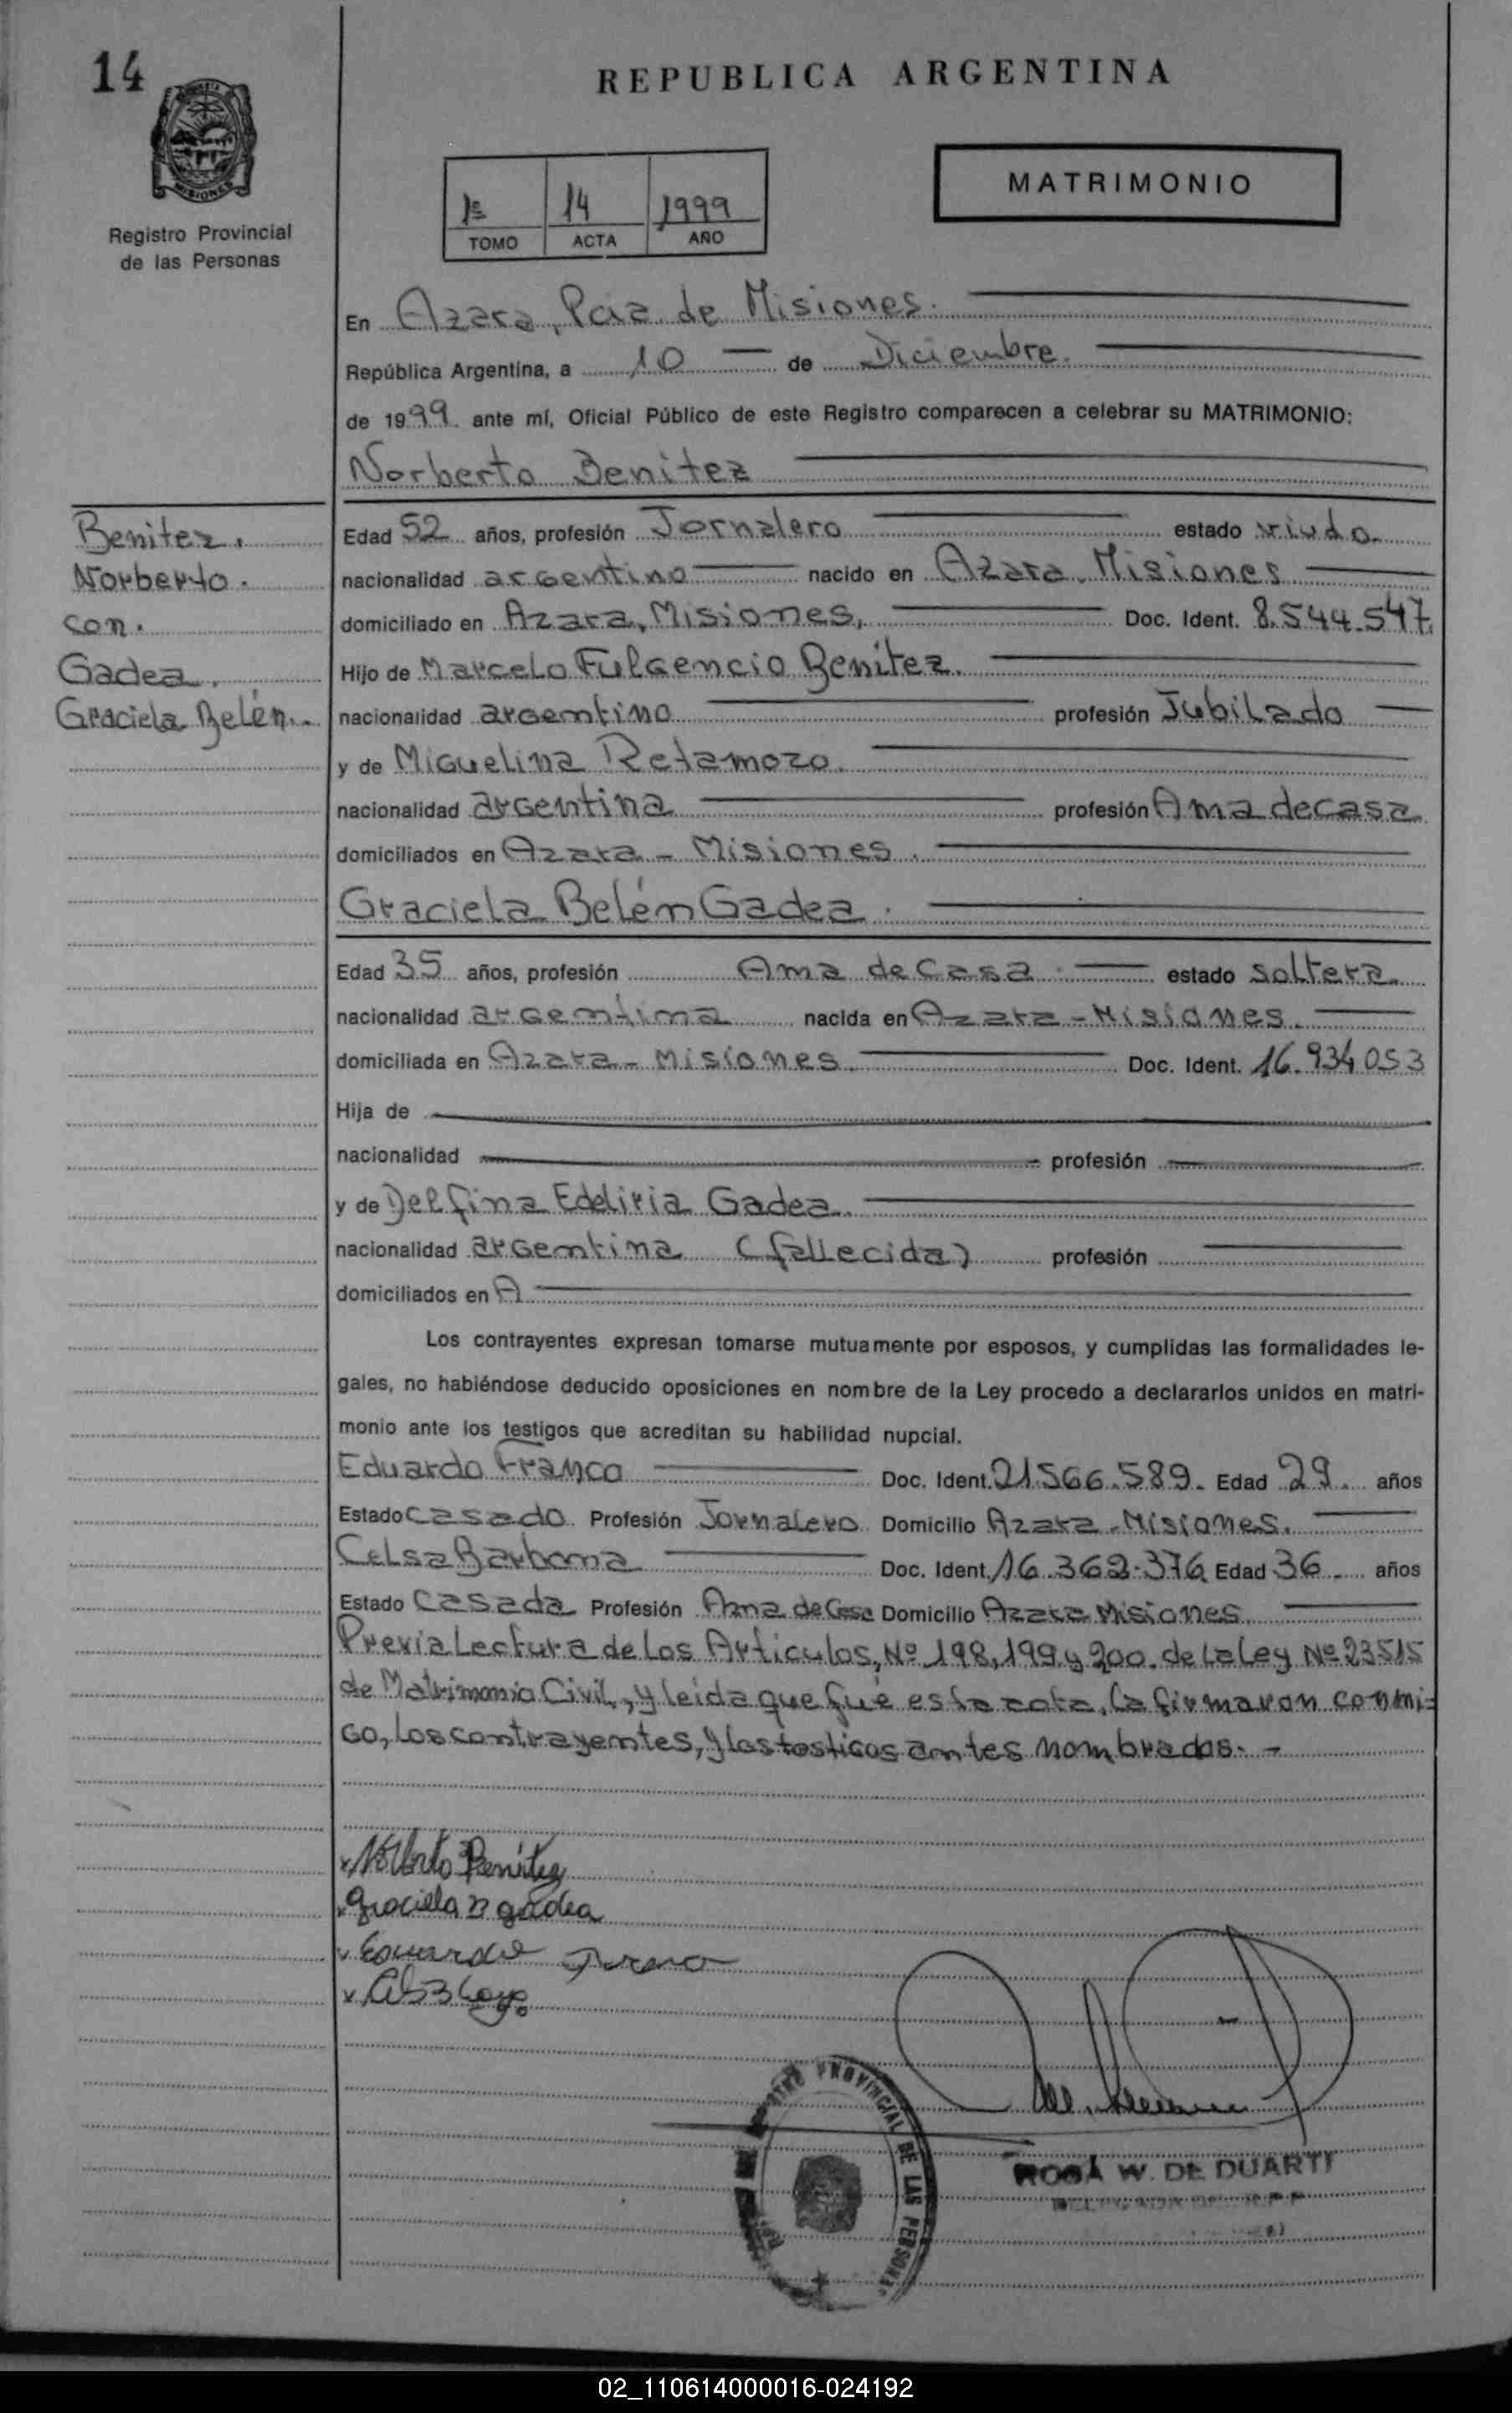 14
REPUBLICA ARGENTINA
MISIONES
Registro Provincial
de las Personas
1º 14 1999
TOMO ACTA AÑO
MATRIMONIO
En Azara, Pcia de Misiones.
República Argentina, a 10 de Diciembre.
de 1999. ante mí, Oficial Público de este Registro comparecen a celebrar su MATRIMONIO:
Norberto Benitez
Benitez.
Norberto.
con.
Gadea.
Graciela Belén.
Edad 52 años, profesión Jornalero estado viudo.
nacionalidad argentino nacido en Azara, Misiones
domiciliado en Azara, Misiones, Doc. Ident. 8.544.547.
Hijo de Marcelo Fulgencio Benitez.
nacionalidad argentino profesión Jubilado
y de Miguelina Retamozo.
nacionalidad argentina profesión Ama de casa
domiciliados en Azara - Misiones.
Graciela Belén Gadea.
Edad 35 años, profesión Ama de Casa. estado soltera.
nacionalidad argentina nacida en Azara - Misiones.
domiciliada en Azara - Misiones. Doc. Ident. 16.934.053
Hija de
nacionalidad profesión
y de Delfina Edeliria Gadea.
nacionalidad argentina (fallecida) profesión
domiciliados en A
Los contrayentes expresan tomarse mutuamente por esposos, y cumplidas las formalidades le-
gales, no habiéndose deducido oposiciones en nombre de la Ley procedo a declararlos unidos en matri-
monio ante los testigos que acreditan su habilidad nupcial.
Eduardo Franco Doc. Ident. 21.566.589. Edad 29. años
Estado casado. Profesión Jornalero Domicilio Azara - Misiones.
Celsa Barbona Doc. Ident. 16.362.376 Edad 36. años
Estado Casada Profesión Ama de Casa Domicilio Azara Misiones
Previa Lectura de Los Articulos, Nº 198, 199 y 200. de la Ley Nº 23515
de Matrimonio Civil, y leida que fué esta acta, la firmaron conmi=
go, los contrayentes, y los testigos antes nombrados. -
Norberto Benitez
Graciela B gadea
Eduardo
PROVINCIAL DE LAS PERSONAS
ROSA W. DE DUARTE
02_110614000016-024192